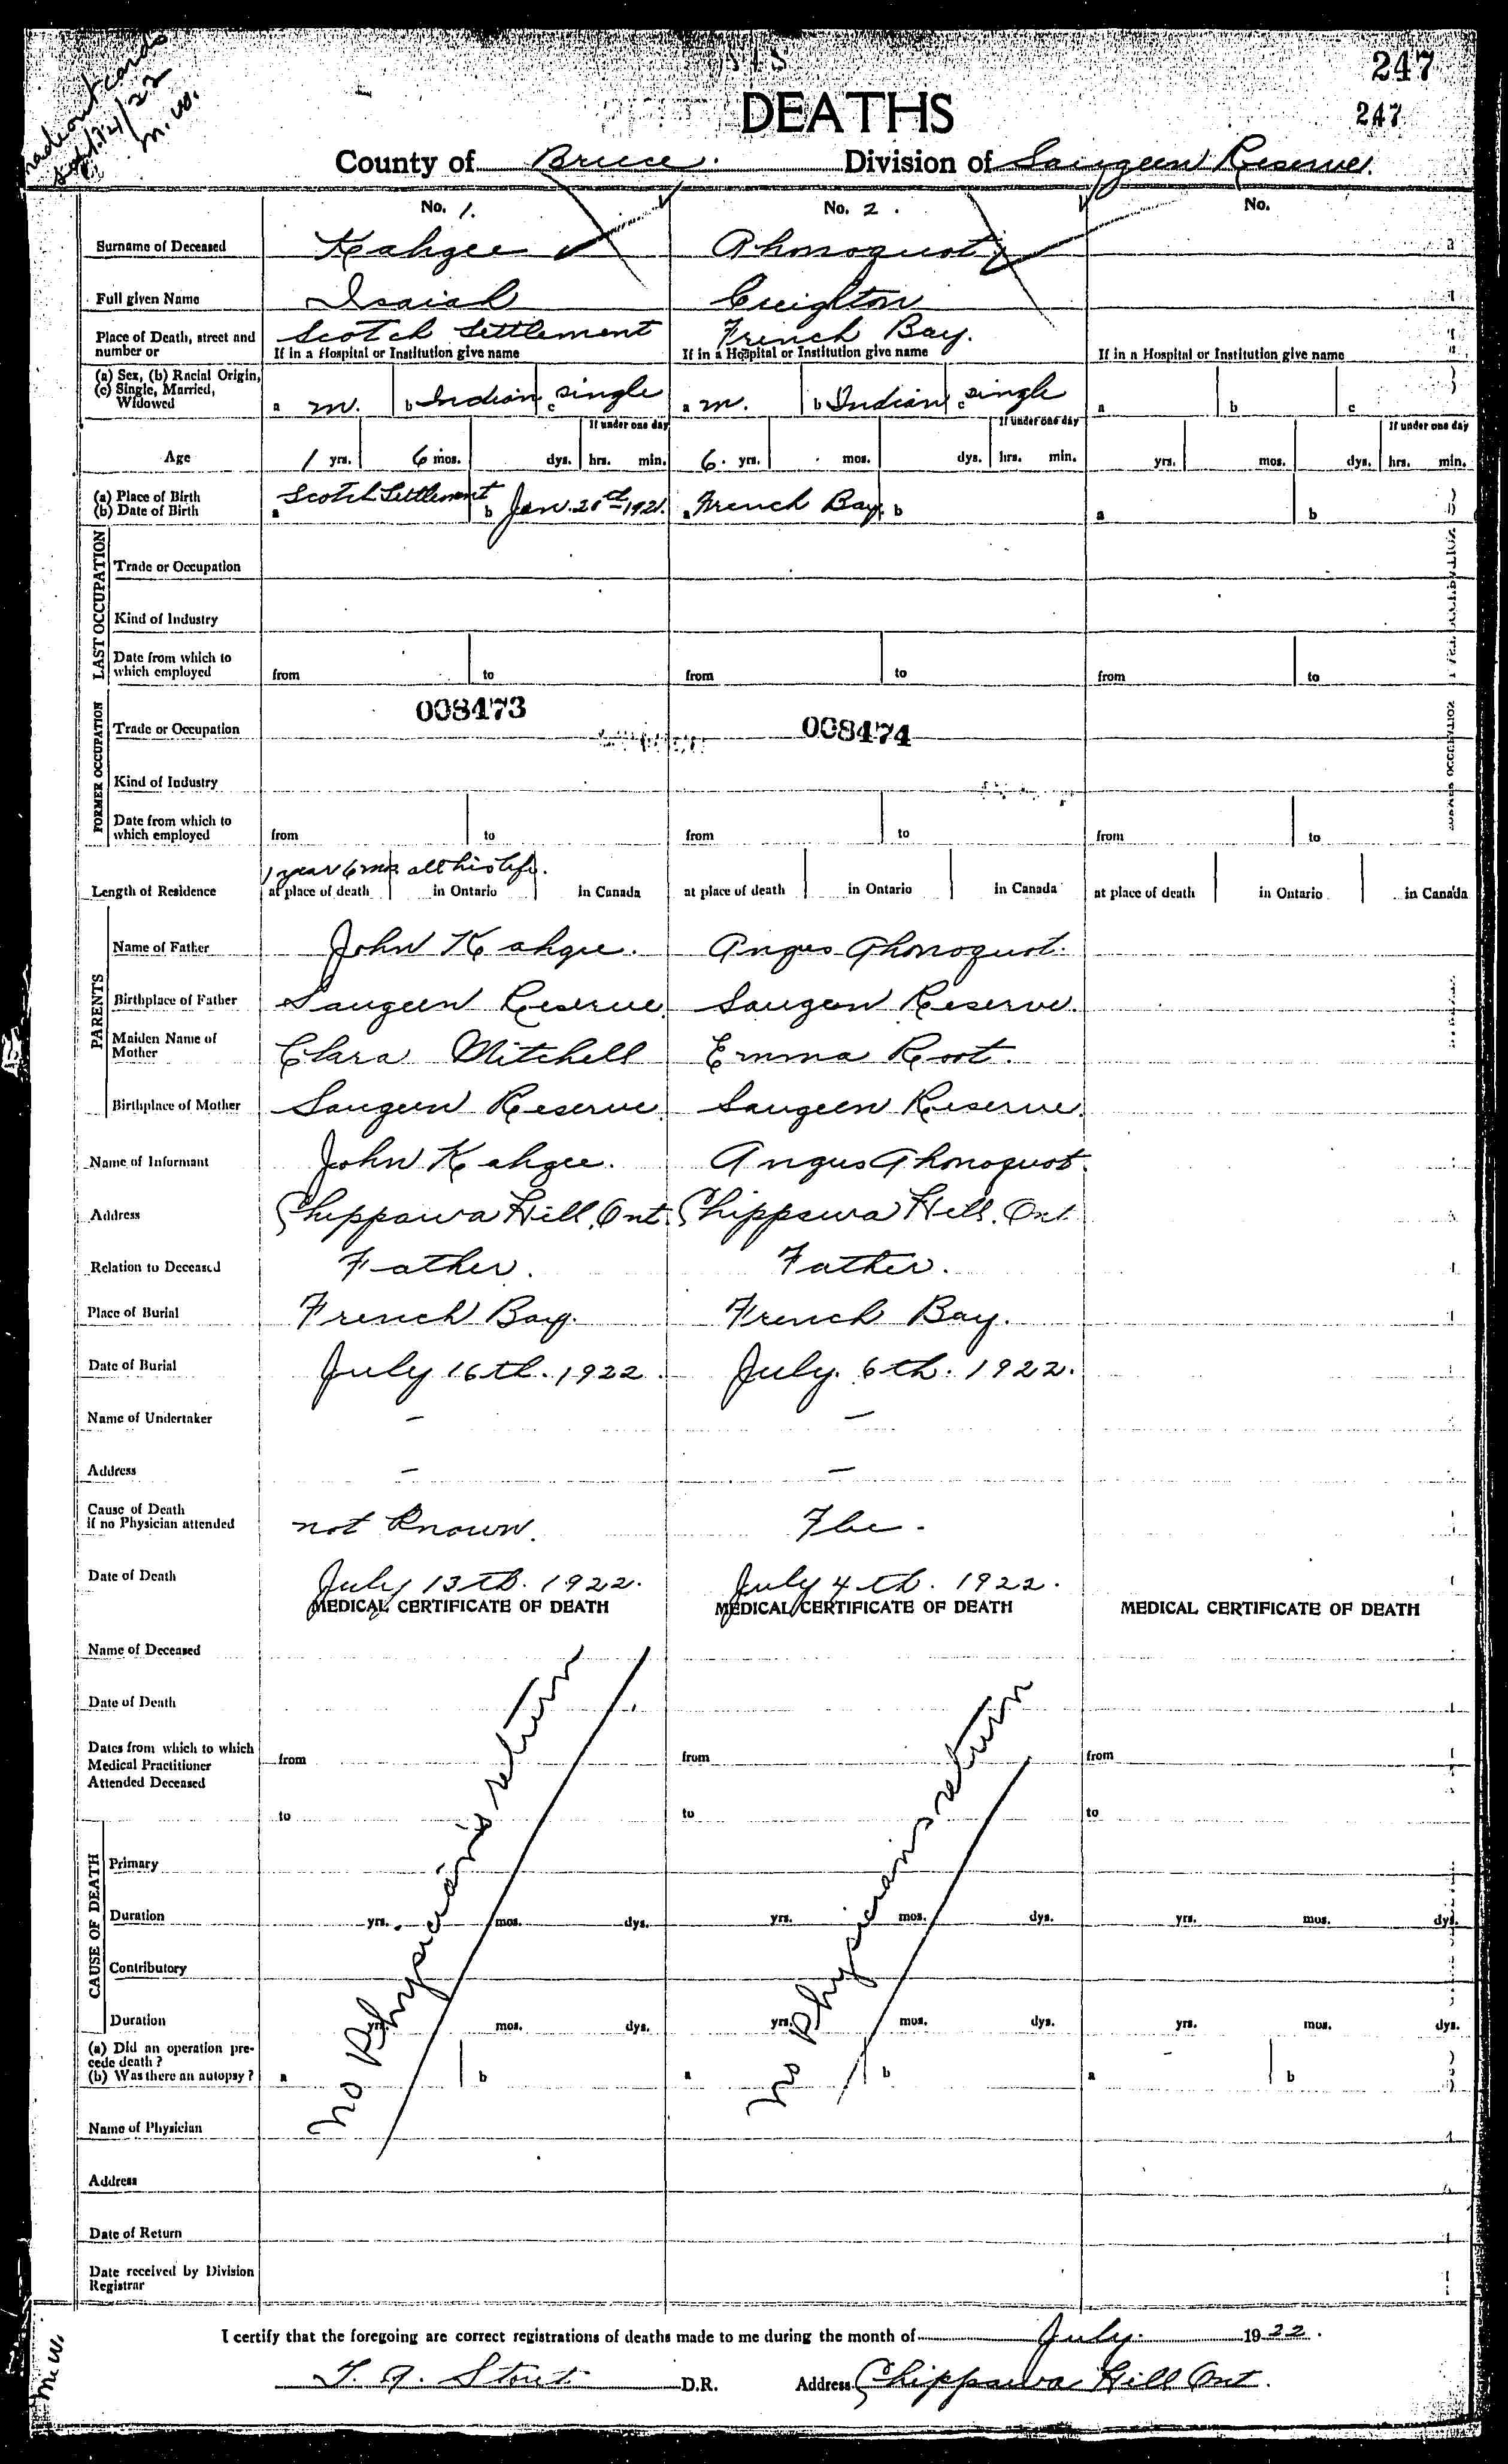 247
DEATHS
247
County of Bruce. Division of Saugeen Reserve.
No. 1. No. 2. No.
Surname of Deceased Kahgee Ahmoquot
Full given Name Isaiah Creighton
Place of Death, street and number or Scotch Settlement French Bay.
If in a Hospital or Institution give name If in a Hospital or Institution give name If in a Hospital or Institution give name
(a) Sex, (b) Racial Origin, (c) Single, Married, Widowed a m. b Indian c single a m. b Indian c single a b c
If under one day If under one day If under one day
Age 1 yrs. 6 mos. dys. hrs. min. 6. yrs. mos. dys. hrs. min. yrs. mos. dys. hrs. min.
(a) Place of Birth (b) Date of Birth a Scotch Settlement b Jan. 1921. a French Bay. b a b
LAST OCCUPATION
Trade or Occupation
Kind of Industry
Date from which to which employed from to from to from to
008473 008474
FORMER OCCUPATION
Trade or Occupation
Kind of Industry
Date from which to which employed from to from to from to
1 year 6 mos. all his life.
Length of Residence at place of death in Ontario in Canada at place of death in Ontario in Canada at place of death in Ontario in Canada
PARENTS
Name of Father John Kahgee. Angus Ahonoquot.
Birthplace of Father Saugeen Reserve. Saugeen Reserve.
Maiden Name of Mother Clara Mitchell Emma Root.
Birthplace of Mother Saugeen Reserve. Saugeen Reserve.
Name of Informant John Kahgee. Angus Ahonoquot.
Address Chippawa Hill, Ont. Chippawa Hill, Ont.
Relation to Deceased Father. Father.
Place of Burial French Bay. French Bay.
Date of Burial July 16th. 1922. July. 6th. 1922.
Name of Undertaker — —
Address — —
Cause of Death if no Physician attended not known. Flu.
Date of Death July 13th. 1922. July 4th. 1922.
MEDICAL CERTIFICATE OF DEATH MEDICAL CERTIFICATE OF DEATH MEDICAL CERTIFICATE OF DEATH
Name of Deceased
Date of Death
Dates from which to which Medical Practitioner Attended Deceased from from from
to to to
no Physician's return no Physician's return
CAUSE OF DEATH
Primary
Duration yrs. mos. dys. yrs. mos. dys. yrs. mos. dys.
Contributory
Duration yrs. mos. dys. yrs. mos. dys. yrs. mos. dys.
(a) Did an operation precede death? (b) Was there an autopsy? a b a b a b
Name of Physician
Address
Date of Return
Date received by Division Registrar
I certify that the foregoing are correct registrations of deaths made to me during the month of July. 1922.
T. A. Stout D.R. Address Chippawa Hill Ont.
M.W.